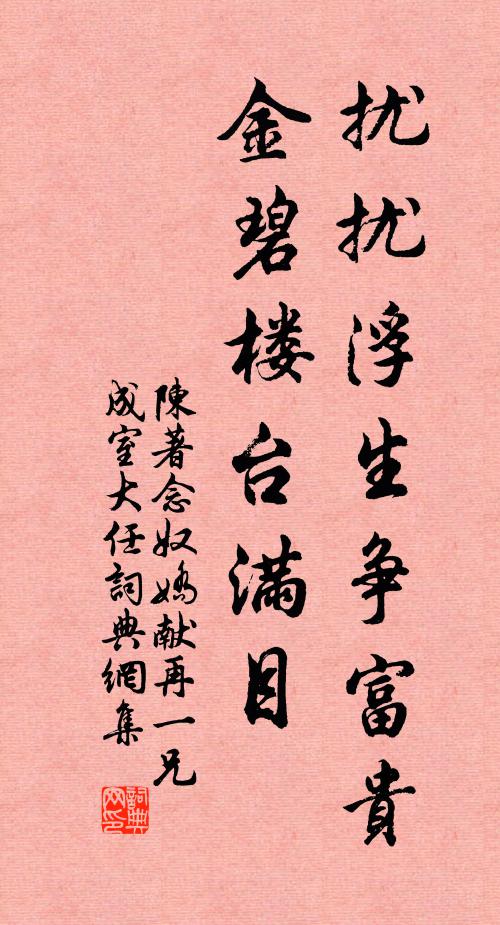 扰扰浮生争富貴
金碧楼台满目
陳著念奴嬌献再一兄
成室大任詞典網集
詞典网印